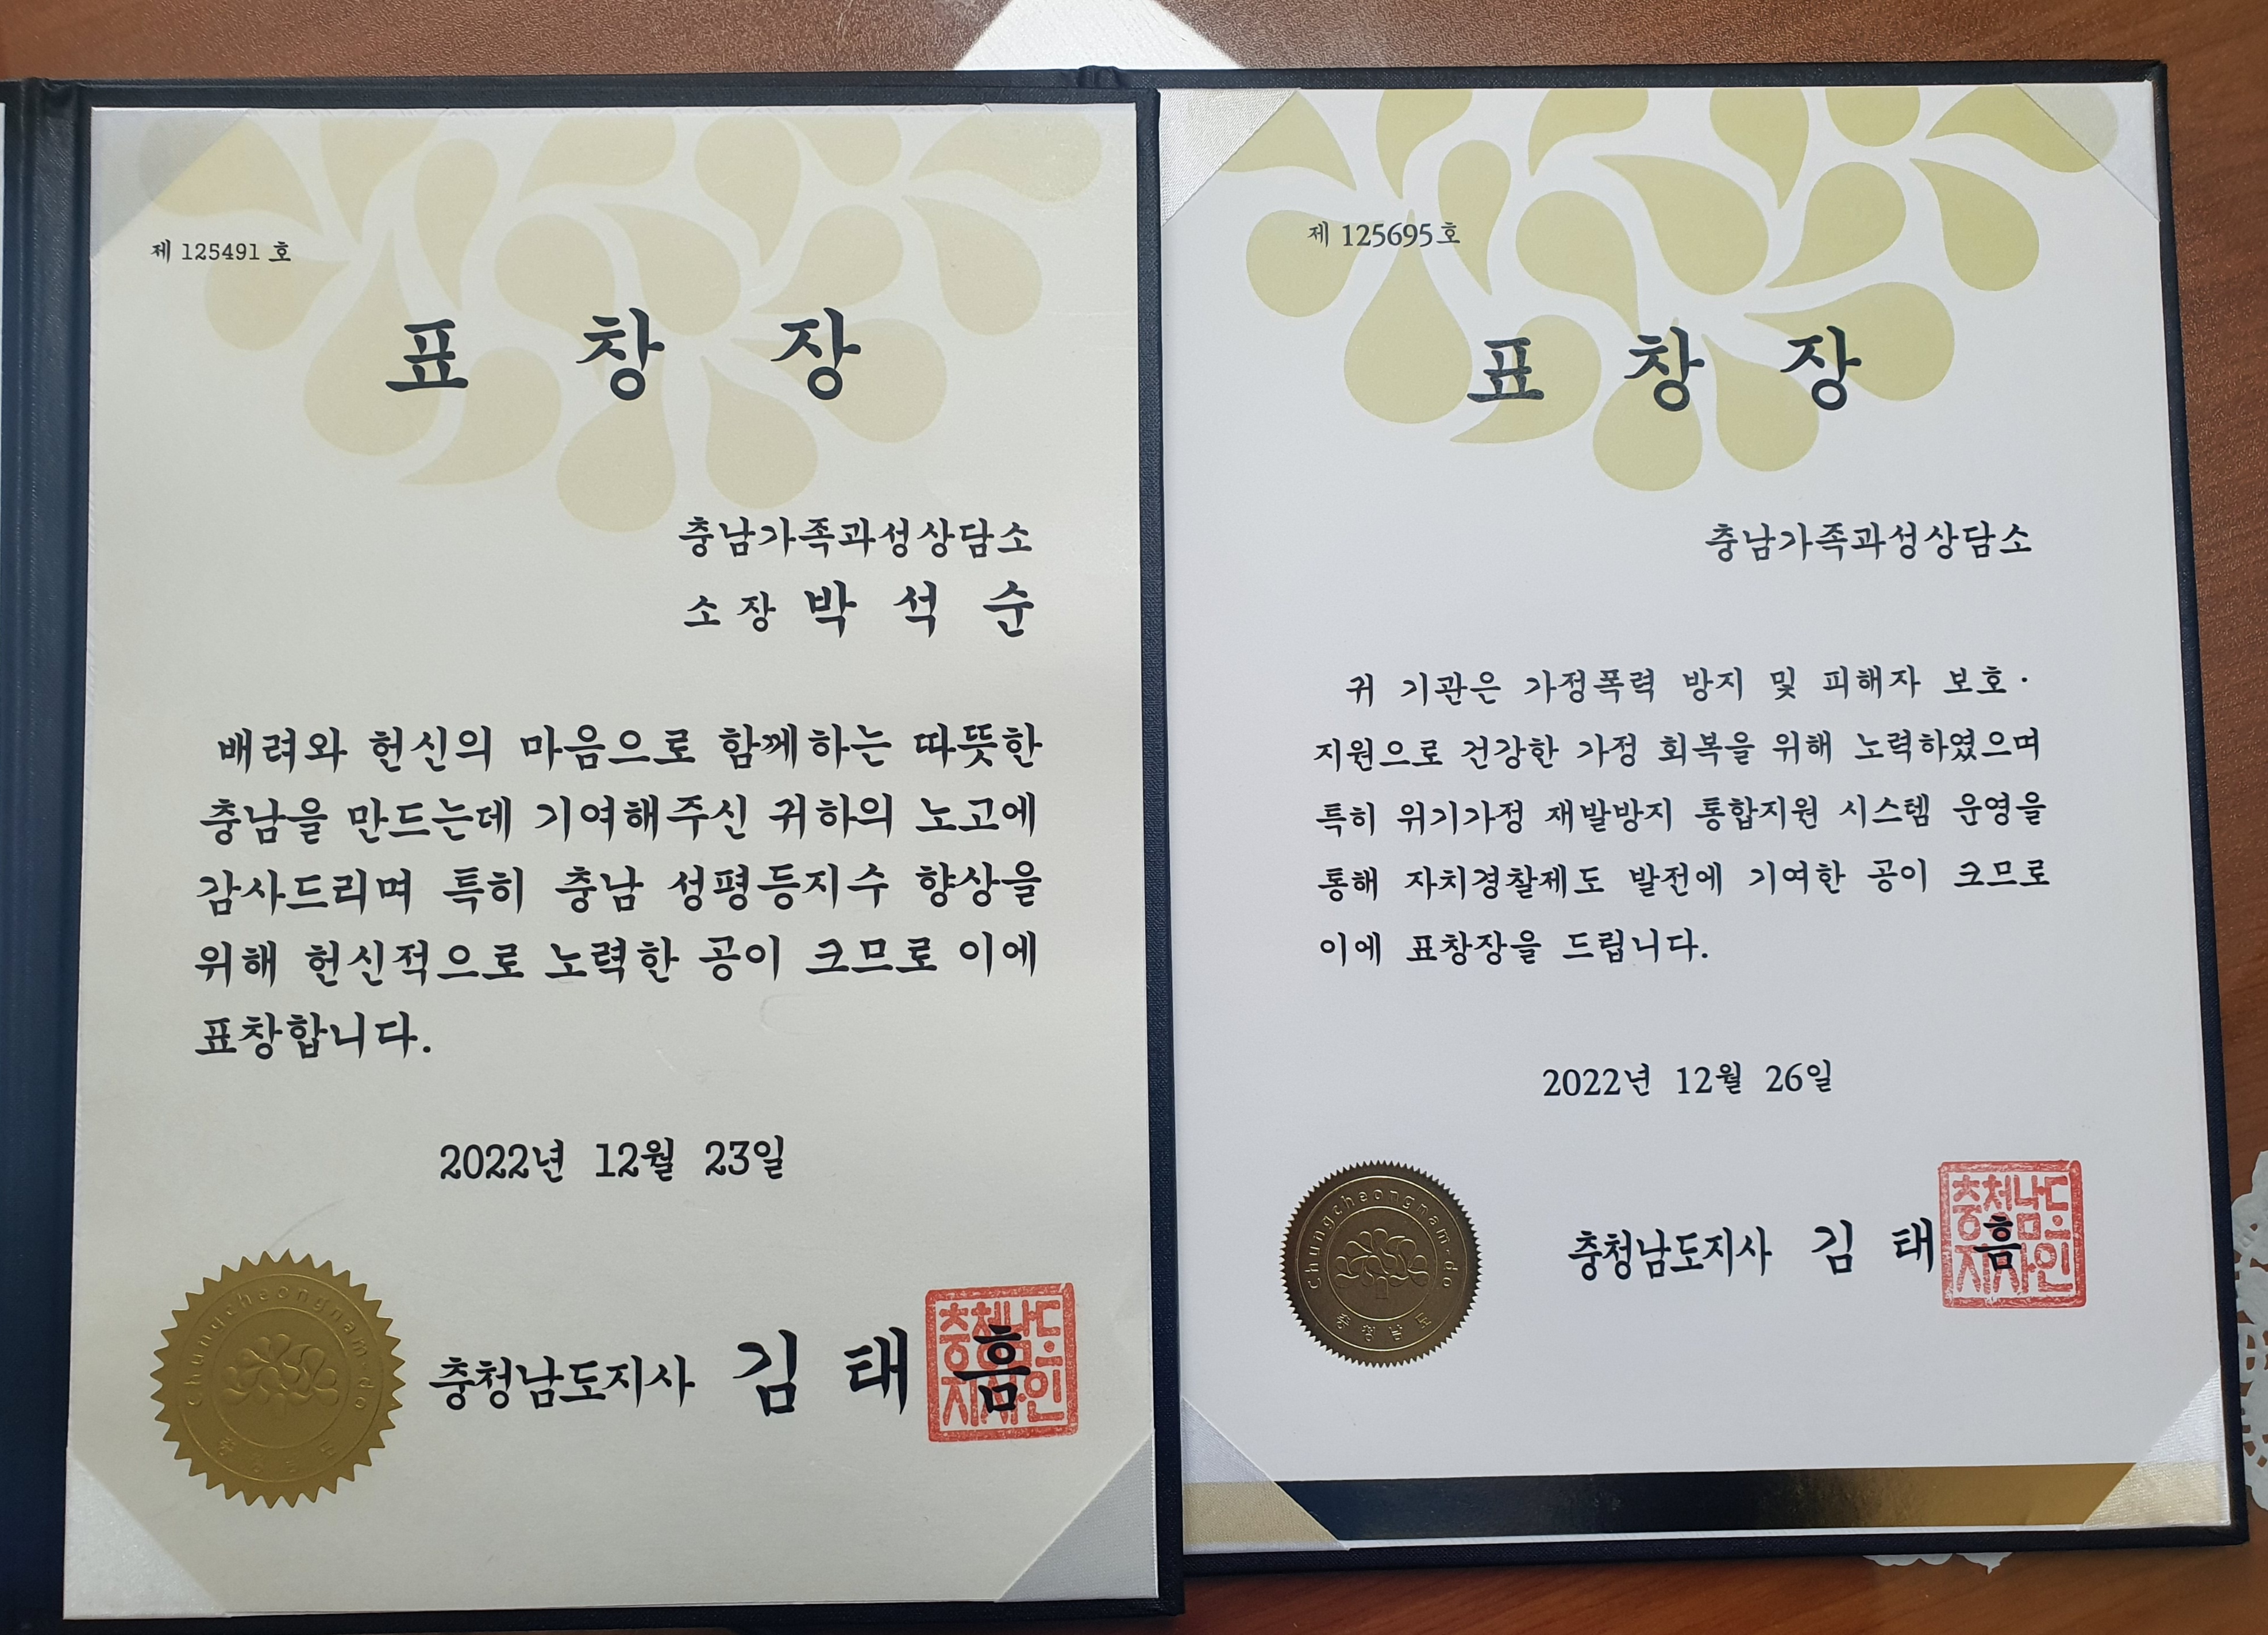 제 125491 호
표 창 장
충남가족과성상담소
소 장 박 석 순
배려와 헌신의 마음으로 함께하는 따뜻한
충남을 만드는데 기여해주신 귀하의 노고에
감사드리며 특히 충남 성평등지수 향상을
위해 헌신적으로 노력한 공이 크므로 이에
표창합니다.
2022년 12월 23일
chungcheongnam do
충청남도
충청남도지사 김 태 흠
충청남도
지사인
제 125695호
표 창 장
충남가족과성상담소
귀 기관은 가정폭력 방지 및 피해자 보호·
지원으로 건강한 가정 회복을 위해 노력하였으며
특히 위기가정 재발방지 통합지원 시스템 운영을
통해 자치경찰제도 발전에 기여한 공이 크므로
이에 표창장을 드립니다.
2022년 12월 26일
chungcheongnam·do
충청남도
충청남도지사 김 태 흠
충청남도
지사인